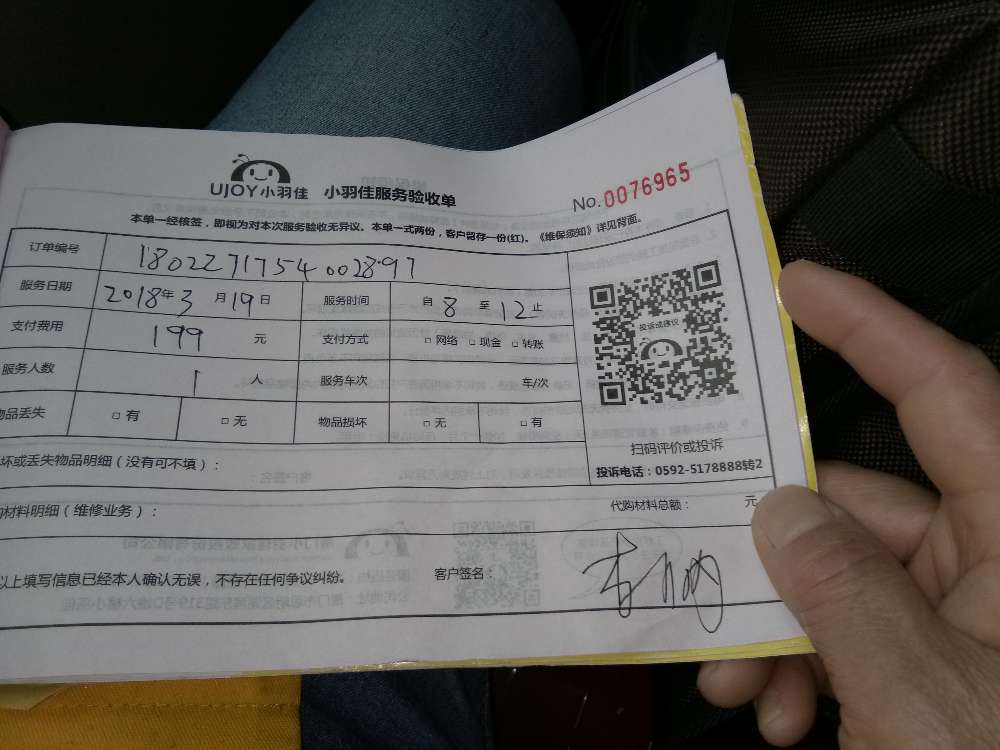 UJOY小羽佳 小羽佳服务验收单
No.0076965
本单一经核签，即视为对本次服务验收无异议。本单一式两份，客户留存一份(红)。《维保须知》详见背面。
订单编号 1802271754002897
服务日期 2018年3月19日 服务时间 自8至12止
支付费用 199元 支付方式 □网络 □现金 □转账
服务人数 1人 服务车次 车/次
物品丢失 □有 □无 物品损坏 □无 □有
投诉或建议
扫码评价或投诉
投诉电话：0592-5178888转2
坏或丢失物品明细（没有可不填）：
材料明细（维修业务）： 代购材料总额： 元
以上填写信息已经本人确认无误，不存在任何争议纠纷。 客户签名：